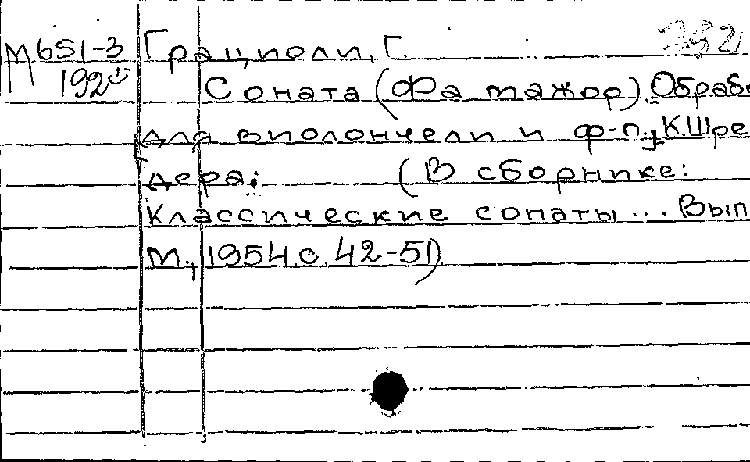 М651-3 Грациоли, Г. 392
192
Соната (Фа мажор). Обраб
для виолончели и ф-п. К. Шре
дера. (В сборнике:
Классические сонаты... Вып
М., 1954. с. 42-51)